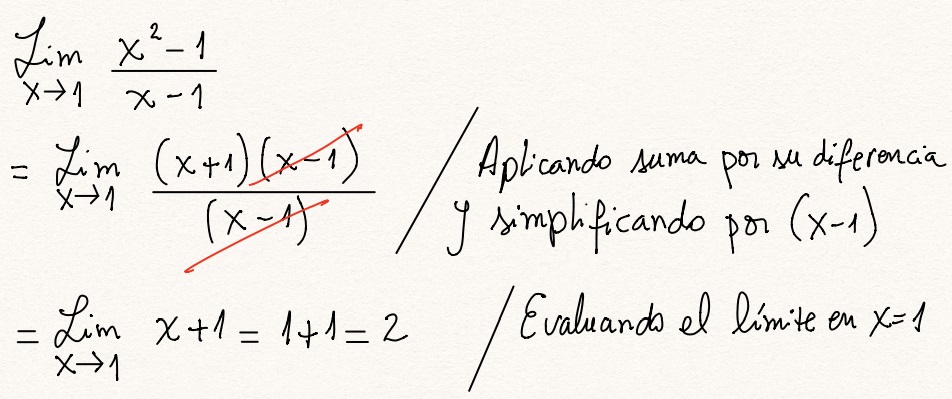 Lim x→1 (x² - 1)/(x - 1)
= Lim x→1 (x+1)(x-1)/(x-1) / Aplicando suma por su diferencia
y simplificando por (x-1)
= Lim x→1 x+1 = 1+1 = 2 / Evaluando el límite en x=1